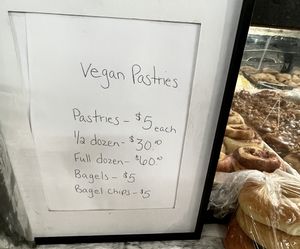 Vegan Pastries
Pastries - $5 each
1/2 dozen - $30.00
Full dozen - $60.00
Bagels - $5
Bagel chips - $5